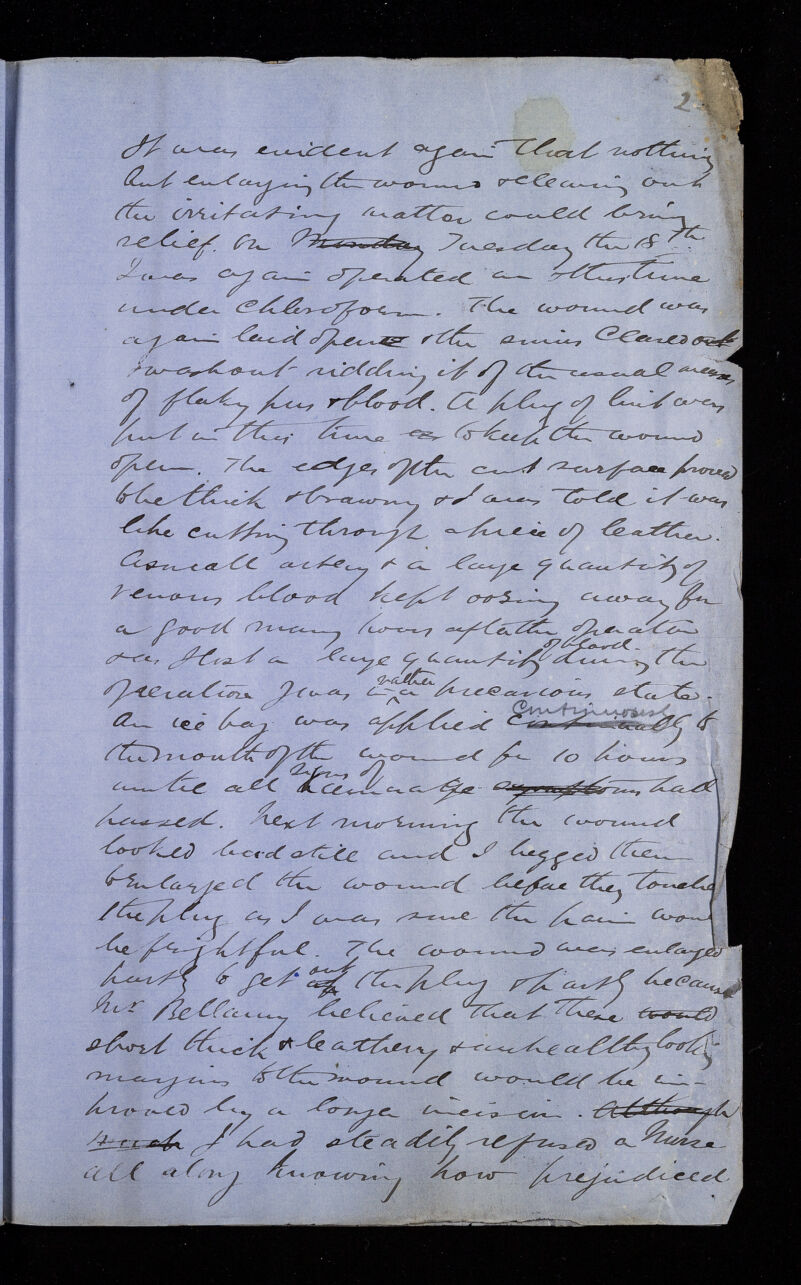 2
It was evident again that nothing
but enlarging the wound & clearing out
the irritating matter could bring
relief. On Monday Tuesday the 18th
I was again operated on & this time
under chloroform. The wound was
again laid open & the sinus cleared out
& washed out ridding it of the usual masses
of flaky pus & blood. A plug of lint was
put in this time to keep the wound
open. The edges of the cut surface proved
to be thick & brawny & I was told it was
like cutting through a piece of leather.
A small artery & a large quantity of
venous blood kept oozing away for
a good many hours after the operation
& as I lost a large quantity of blood during the
operation I was in a rather precarious state.
An ice bag was applied continuously to
the mouth of the wound for 10 hours
until all signs of haemorrhage symptoms had
passed. Next morning the wound
looked bad still and I begged them
to enlarged the wound before they touched
the plug as I was sure the pain would
be frightful. The wound was enlarged
partly to get out the plug & partly because
Mr Bellamy believed that these would
short thick & leathery & unhealthy looking
margins to the wound would be im-
proved by a longer incision. Although
such I had steadily refused a Nurse
all along knowing how prejudiced